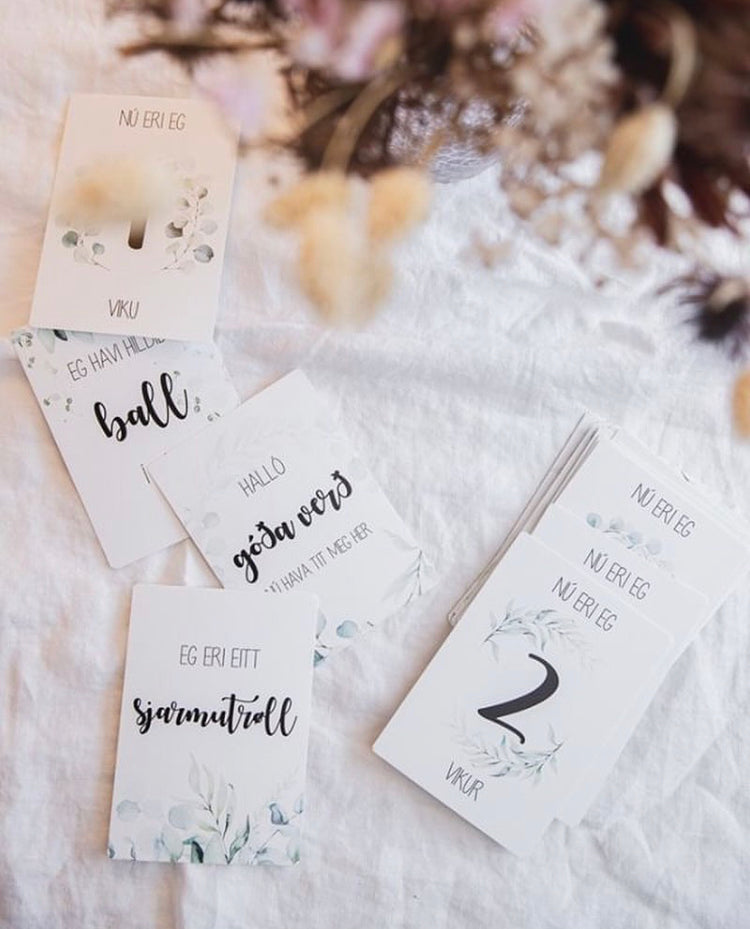 NÚ ERI EG
1
VIKU
EG HAVI HILDIÐ
ball
HALLÓ
góða verð
NÚ HAVA TIT MEG HER
EG ERI EITT
sjarmutrøll
NÚ ERI EG
NÚ ERI EG
NÚ ERI EG
2
VIKUR